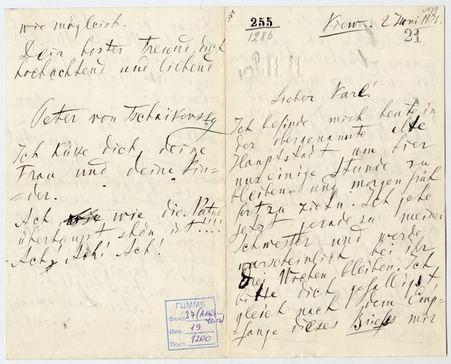 wie möglich.
Dein bester Freund, dich
hochachtend und liebend
Peter von Tschaikovsky
Ich küße dich, deine
Frau und deine Kin-
der.
Ach wie die Natur
überhaupt schön ist!!!!
Ach, Ach! Ach!
ГЦММК
Фонд 37
Инв. 19
Пост. 1200
255
1286
21
Kiew. 2 Juni
Lieber Karl!
Ich befinde mich heute in
der obengenannte alte
Hauptstadt um hier
nur einige Stunde zu
bleiben und morgen früh
fort zu ziehn. Ich gehe
jetzt gerade zu meiner
Schwester und werde
warscheinlich bei ihr
drei Wochen bleiben. Ich
bitte dich gefälligst
gleich nach dem Emp-
fange dieses Briefes mir